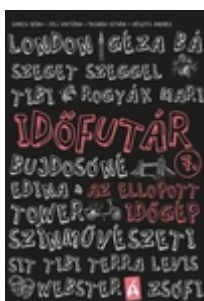 GIMESI DÓRA - JELI VIKTÓRIA - TASNÁDI ISTVÁN - VÉSZITS ANDREA
LONDON GÉZA BÁ
SZEGET SZEGGEL
TIBI ROGYÁK MARI
IDŐFUTÁR
BUJDOSÓNÉ 7.
EDINA AZ ELLOPOTT
TOWER IDŐGÉP
SZÍNMŰVÉSZETI
SIT TIBI TERRA LEVIS
WEBSTER ZSÓFI